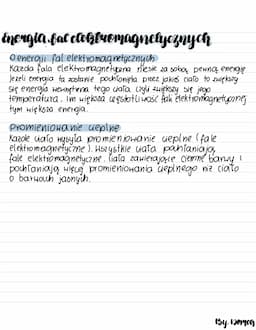 Energia fal elektromagnetycznych
O energii fal elektromagnetycznych
Każda fala elektromagnetyczna niesie za sobą pewną energię
Jeżeli energia ta zostanie pochłonięta przez jakieś ciało to zwiększy
się energia wewnętrzna tego ciała, czyli zwiększy się jego
temperatura. Im większa częstotliwość fali elektromagnetycznej
tym większa energia.
Promieniowanie cieplne
Każde ciało wysyła promieniowanie cieplne (fale
elektromagnetyczne). Wszystkie ciała pochłaniają
fale elektromagnetyczne. Ciała zawierające ciemne barwy
pochłaniają więcej promieniowania cieplnego niż ciało
o barwach jasnych.
By.